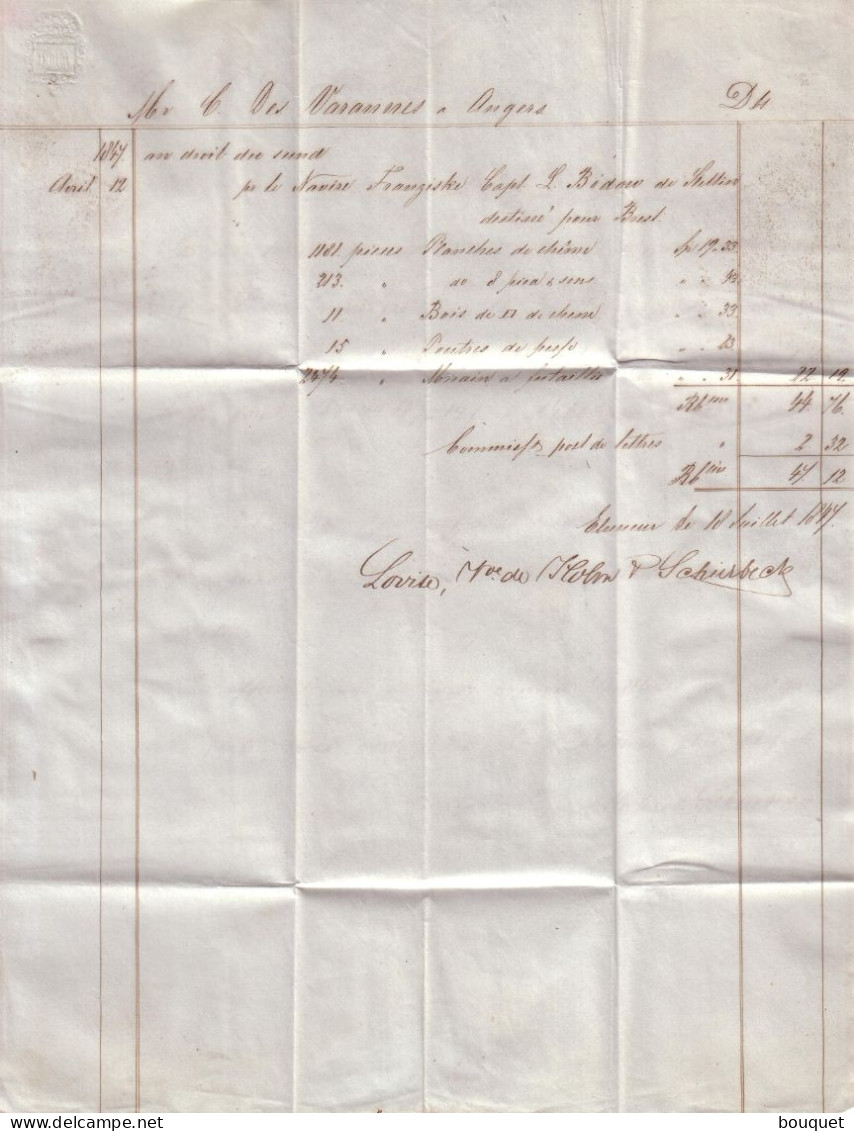 Mr C. Des Varannes a Angers Dt
1847 au droit du sund
Avril 12 pr le Navire Franziska Capt. L. Bidow de Stettin
destiné pour Brest
1181. pieces Planches de chêne Sp 19.33
213. " do " "
11 " Bois de de chene " " 33
15 " Poutres de " " 23
2474. " Merrain a futailles " " 31 22 12
Rb 44 76
Commiss & port de lettres " 2 32
Rb 47 12
Elseneur le 18 Juillet 1847.
Lovise, Vve de Holm & Schierbeck
bouquet